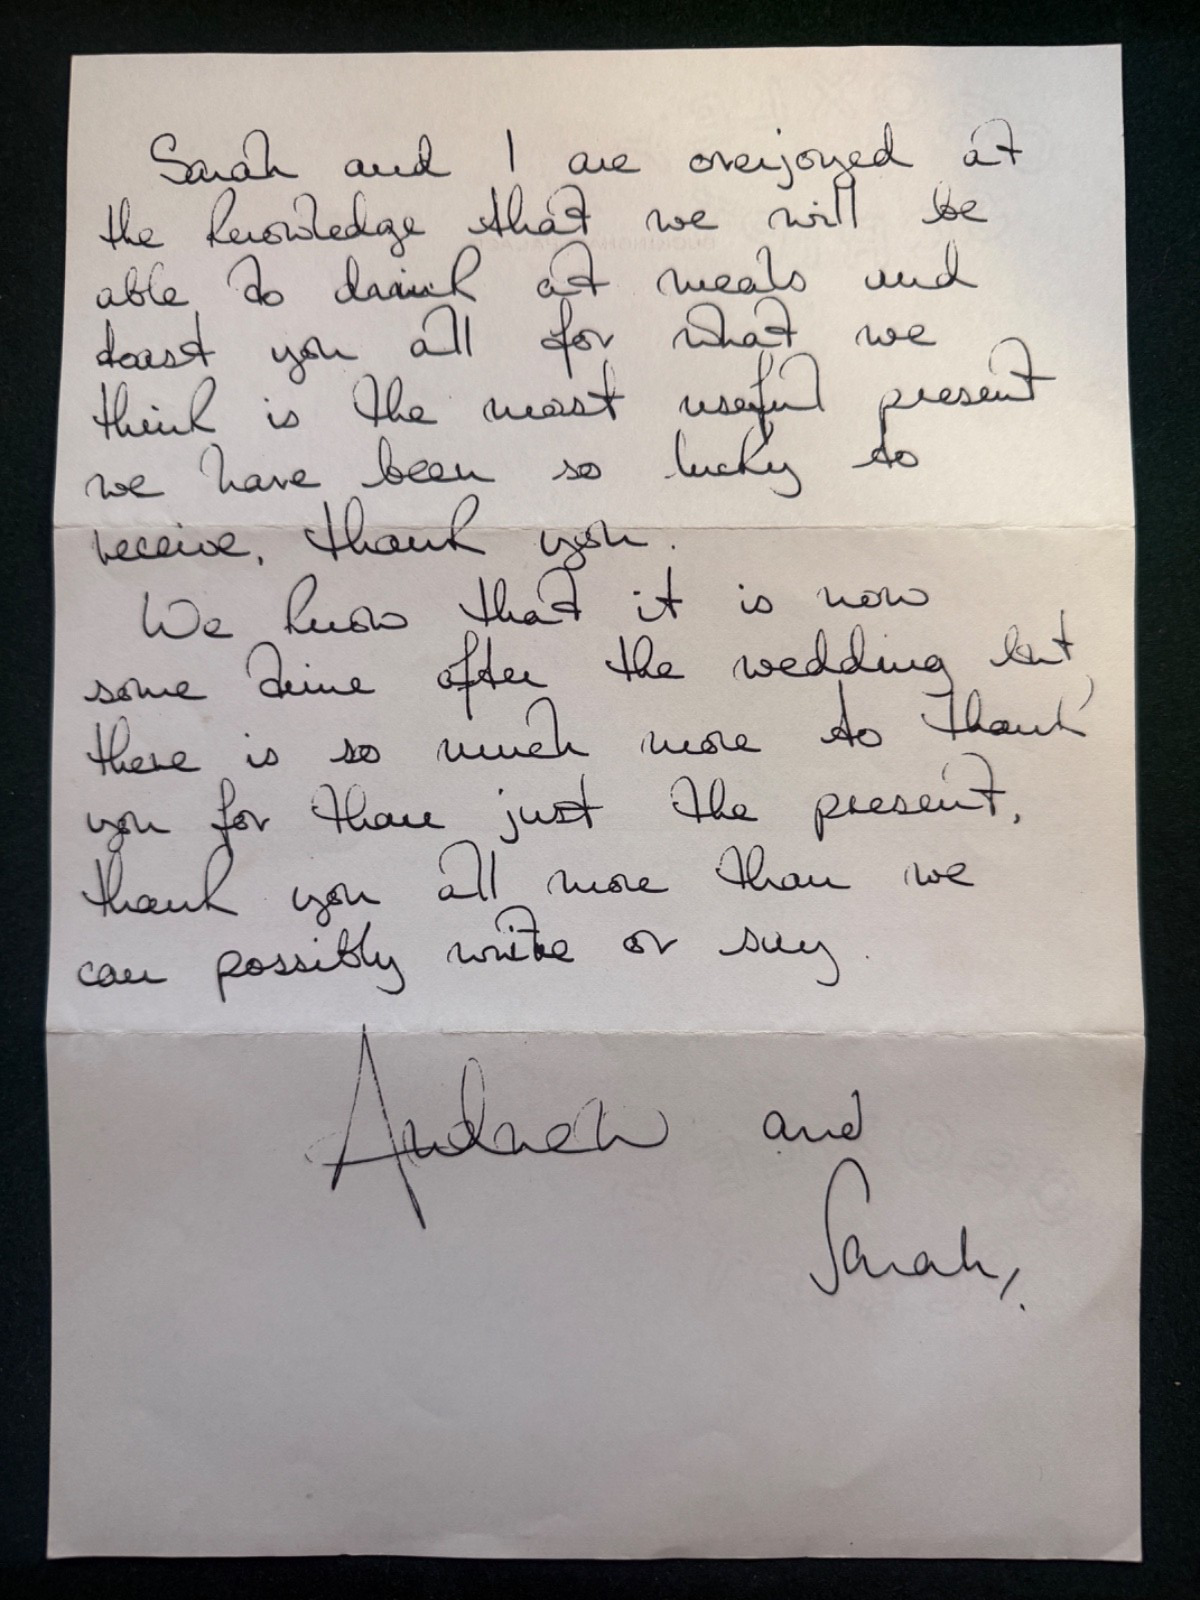 Sarah and I are overjoyed at
the knowledge that we will be
able to drink at meals and
toast you all for what we
think is the most useful present
we have been so lucky to
receive, thank you.
We know that it is now
some time after the wedding but,
there is so much more to thank
you for than just the present,
thank you all more than we
can possibly write or say.
Andrew and
Sarah,.